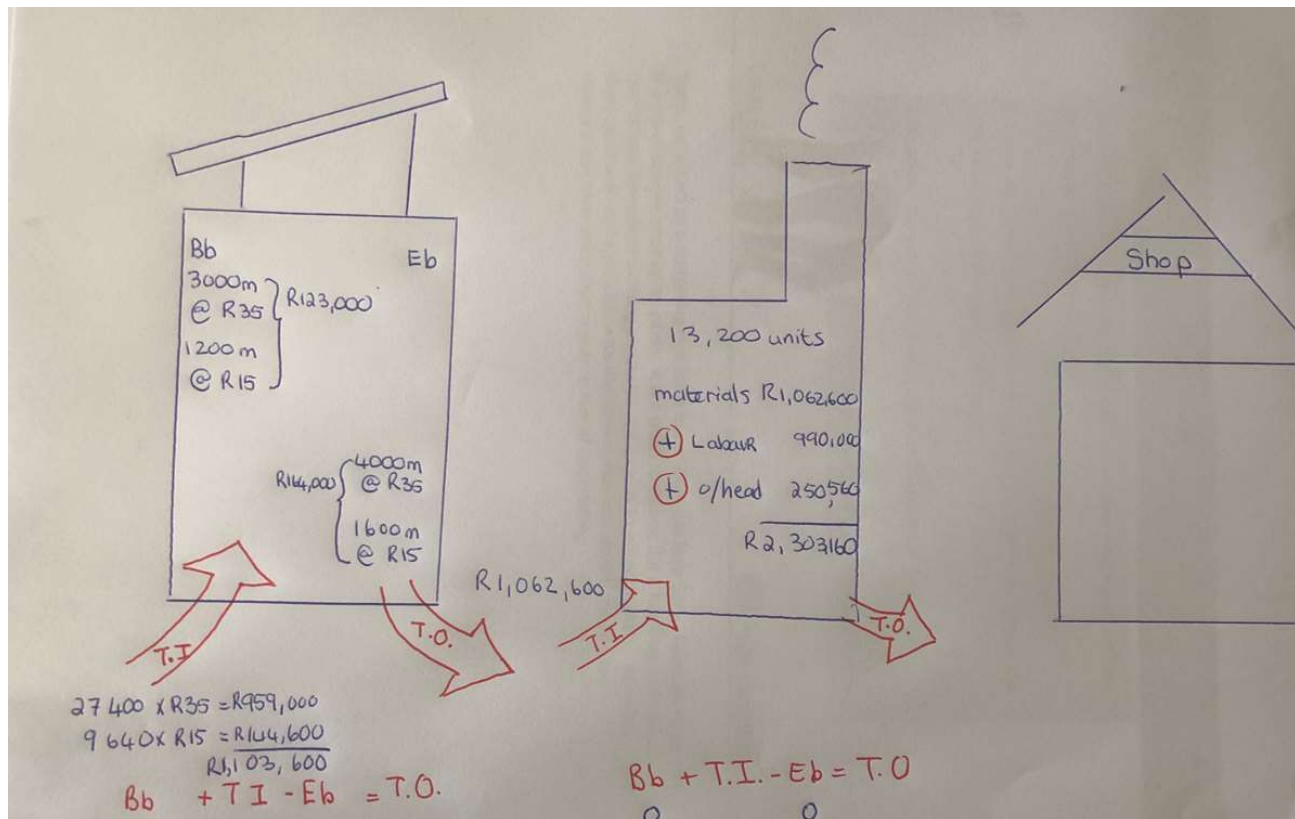 Bb
Eb
3000m
@ R35
R123,000
1200m
@ R15
4000m
@ R35
R164,000
1600m
@ R15
T.I
T.O.
27 400 x R35 = R959,000
9 640 x R15 = R144,600
R1,103,600
Bb + TI - Eb = T.O.
13,200 units
materials R1,062,600
+ Labour 990,000
+ o/head 250,560
R2,303,160
R1,062,600
T.I
T.O.
Bb + T.I. - Eb = T.O
0 0
Shop